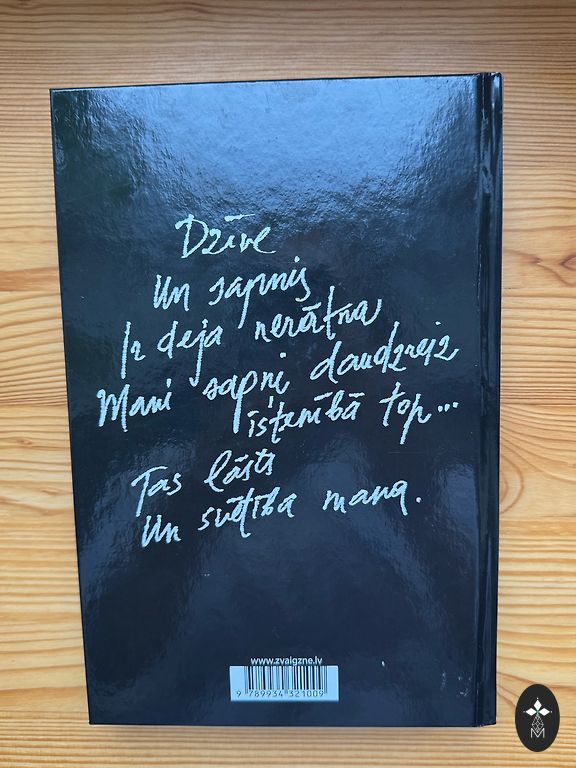 Dzīve
Un sapnis
Ir deja nerātna
Mani sapņi daudzreiz
īstenībā top...
Tas lāsts
Un svētība mana.
www.zvaigzne.lv
9 789934 321009
M